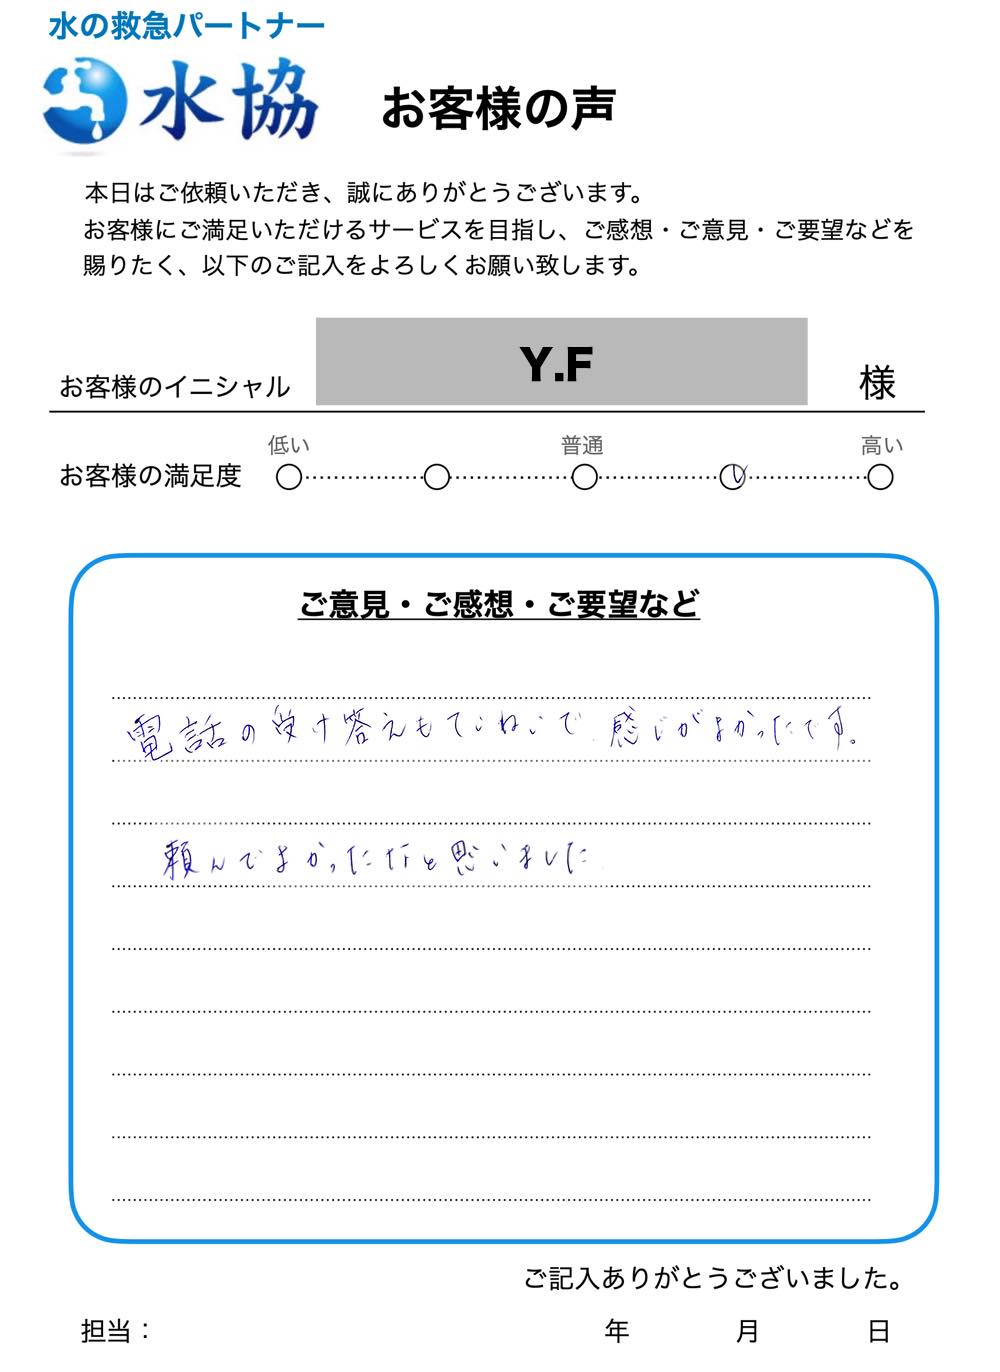 水の救急パートナー
水協
お客様の声
本日はご依頼いただき、誠にありがとうございます。
お客様にご満足いただけるサービスを目指し、ご感想・ご意見・ご要望などを
賜りたく、以下のご記入をよろしくお願い致します。
お客様のイニシャル Y.F 様
低い 普通 高い
お客様の満足度
ご意見・ご感想・ご要望など
電話の受け答えもていねいで 感じがよかったです。
頼んでよかったなと思いました
ご記入ありがとうございました。
担当： 年 月 日